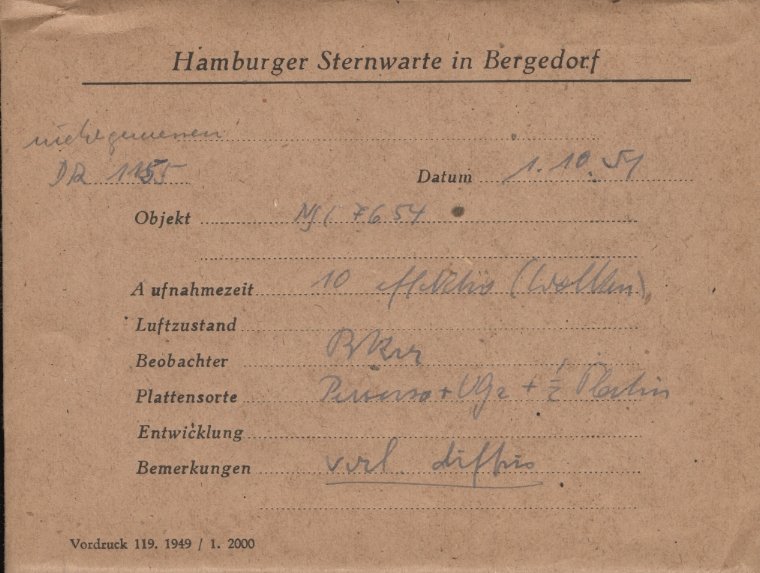 Hamburger Sternwarte in Bergedorf
nicht gemessen
DR 1155
Datum 1.10.51
Objekt NGC 7654
Aufnahmezeit 10 effektiv (Wolken)
Luftzustand
Beobachter
Plattensorte + + ½ Platin
Entwicklung
Bemerkungen viel. diffus
Vordruck 119. 1949 / 1. 2000